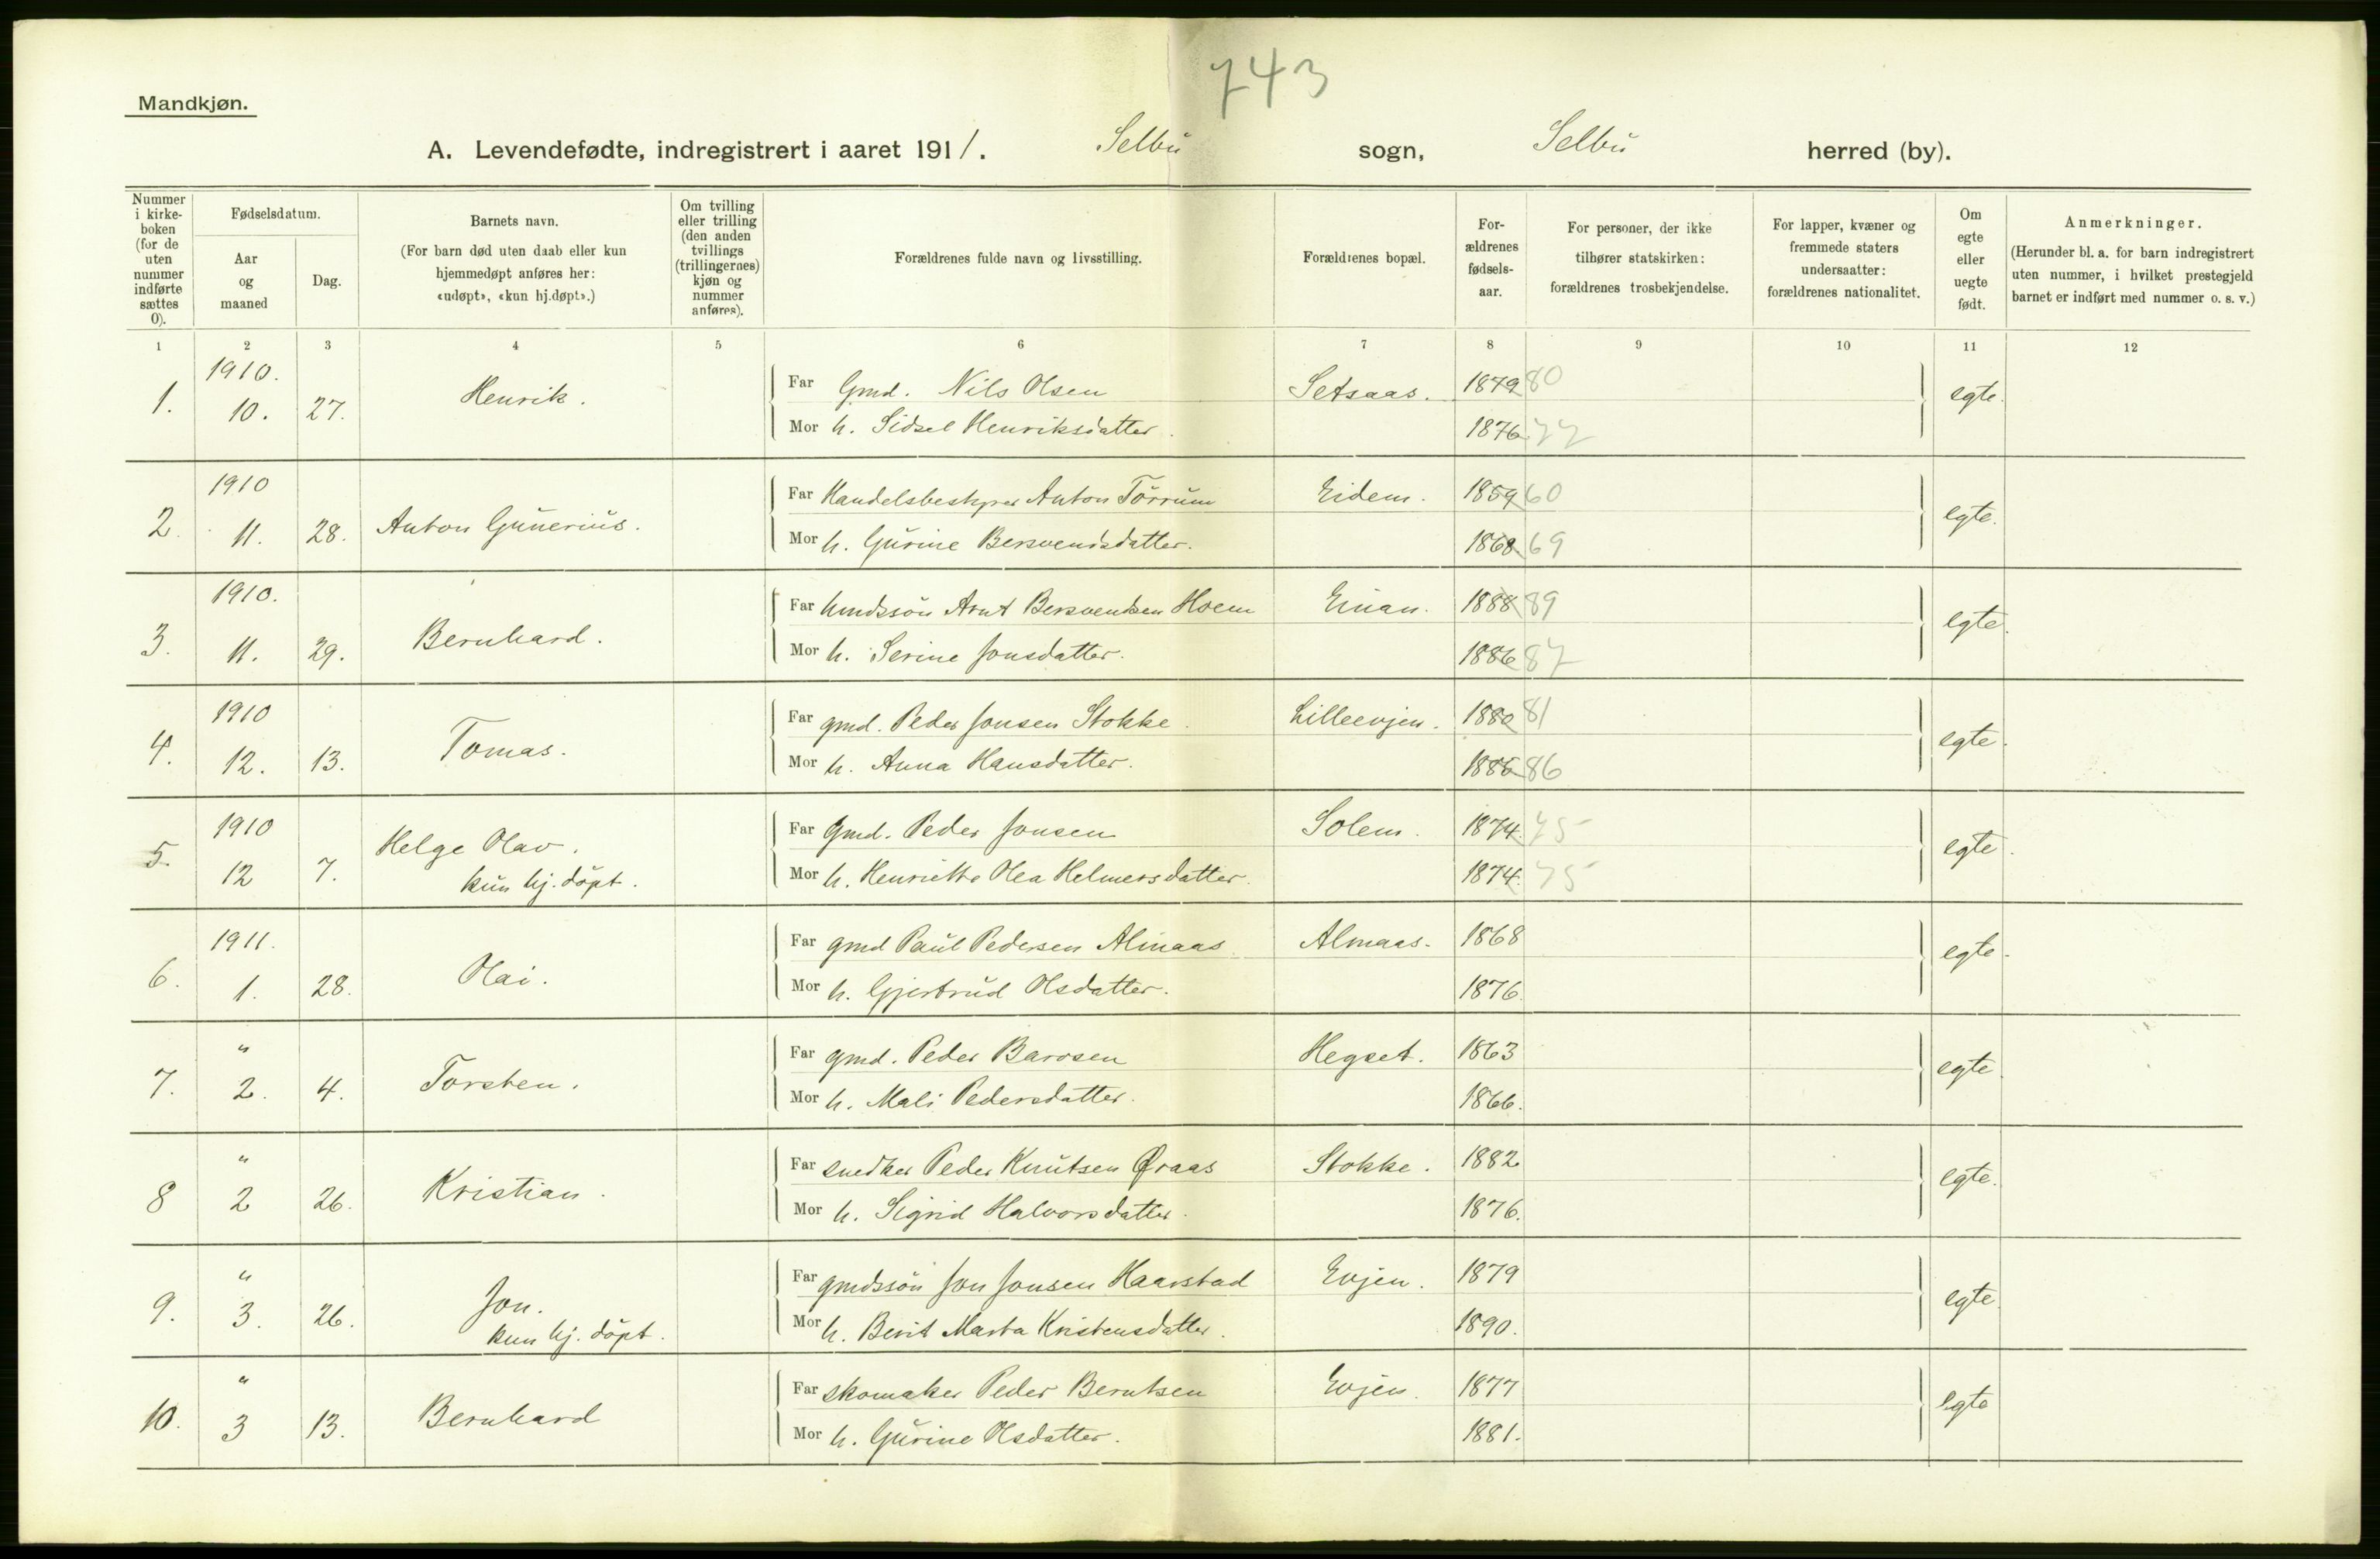 743
Mandkjøn.
A. Levendefødte, indregistrert i aaret 1911. Selbu sogn, Selbu herred (by).
Nummer i kirke-boken (for de uten nummer indførte sættes 0).
Fødselsdatum.
Aar og maaned
Dag.
Barnets navn.
(For barn død uten daab eller kun hjemmedøpt anføres her: «udøpt», «kun hj.døpt».)
Om tvilling eller trilling (den anden tvillings (trillingernes) kjøn og nummer anføres).
Forældrenes fulde navn og livsstilling.
Forældrenes bopæl.
For-ældrenes fødsels-aar.
For personer, der ikke tilhører statskirken: forældrenes trosbekjendelse.
For lapper, kvæner og fremmede staters undersaatter: forældrenes nationalitet.
Om egte eller uegte født.
Anmerkninger.
(Herunder bl. a. for barn indregistrert uten nummer, i hvilket prestegjeld barnet er indført med nummer o. s. v.)
1 2 3 4 5 6 7 8 9 10 11 12
1910.
1. 10. 27. Henrik.
Far Gmd. Nils Olsen Setsaas. 1879 80 egte.
Mor h. Sidsel Henriksdatter. 1876 77
1910
2. 11. 28. Anton Gunerius.
Far Handelsbestyrer Anton Törrum Eidem. 1859 60 egte.
Mor h. Gurine Bersvendsdatter. 1868 69
1910.
3. 11. 29. Bernhard.
Far Arnt Bersvendsen Hoem 1888 89 egte.
Mor h. Serine Jonsdatter. 1886 87
1910
4. 12. 13. Tomas.
Far gmd. Peder Jonsen Stokke. Lilleevjen. 1880 81 egte.
Mor h. Anna Hansdatter. 86
1910
5. 12 7. Helge Olav.
kun hj. döpt.
Far Gmd. Peder Jonsen Solem. 1874 75 egte.
Mor h. Henriette Olea Helmersdatter. 1874. 75
1911.
6. 1. 28. Olai.
Far gmd Paul Pedersen Almaas. Almaas. 1868 egte.
Mor h. Gjertrud Olsdatter. 1876.
"
7. 2. 4. Torsten.
Far gmd. Peder Barosen Hegset. 1863 egte.
Mor h. Mali Pedersdatter. 1866.
"
8 2 26. Kristian.
Far snedker Peder Knutsen Øraas Stokke. 1882 egte.
Mor h. Sigrid Halvorsdatter. 1876.
"
9. 3. 26. Jon.
kun hj. döpt.
Far gmdssön Jon Jonsen Haarstad Evjen. 1879 egte.
Mor h. Berit Marta Kristensdatter. 1890.
"
10. 3 13. Bernhard
Far skomaker Peder Berntsen Evjen. 1877 egte
Mor h. Gurine Olsdatter. 1881.